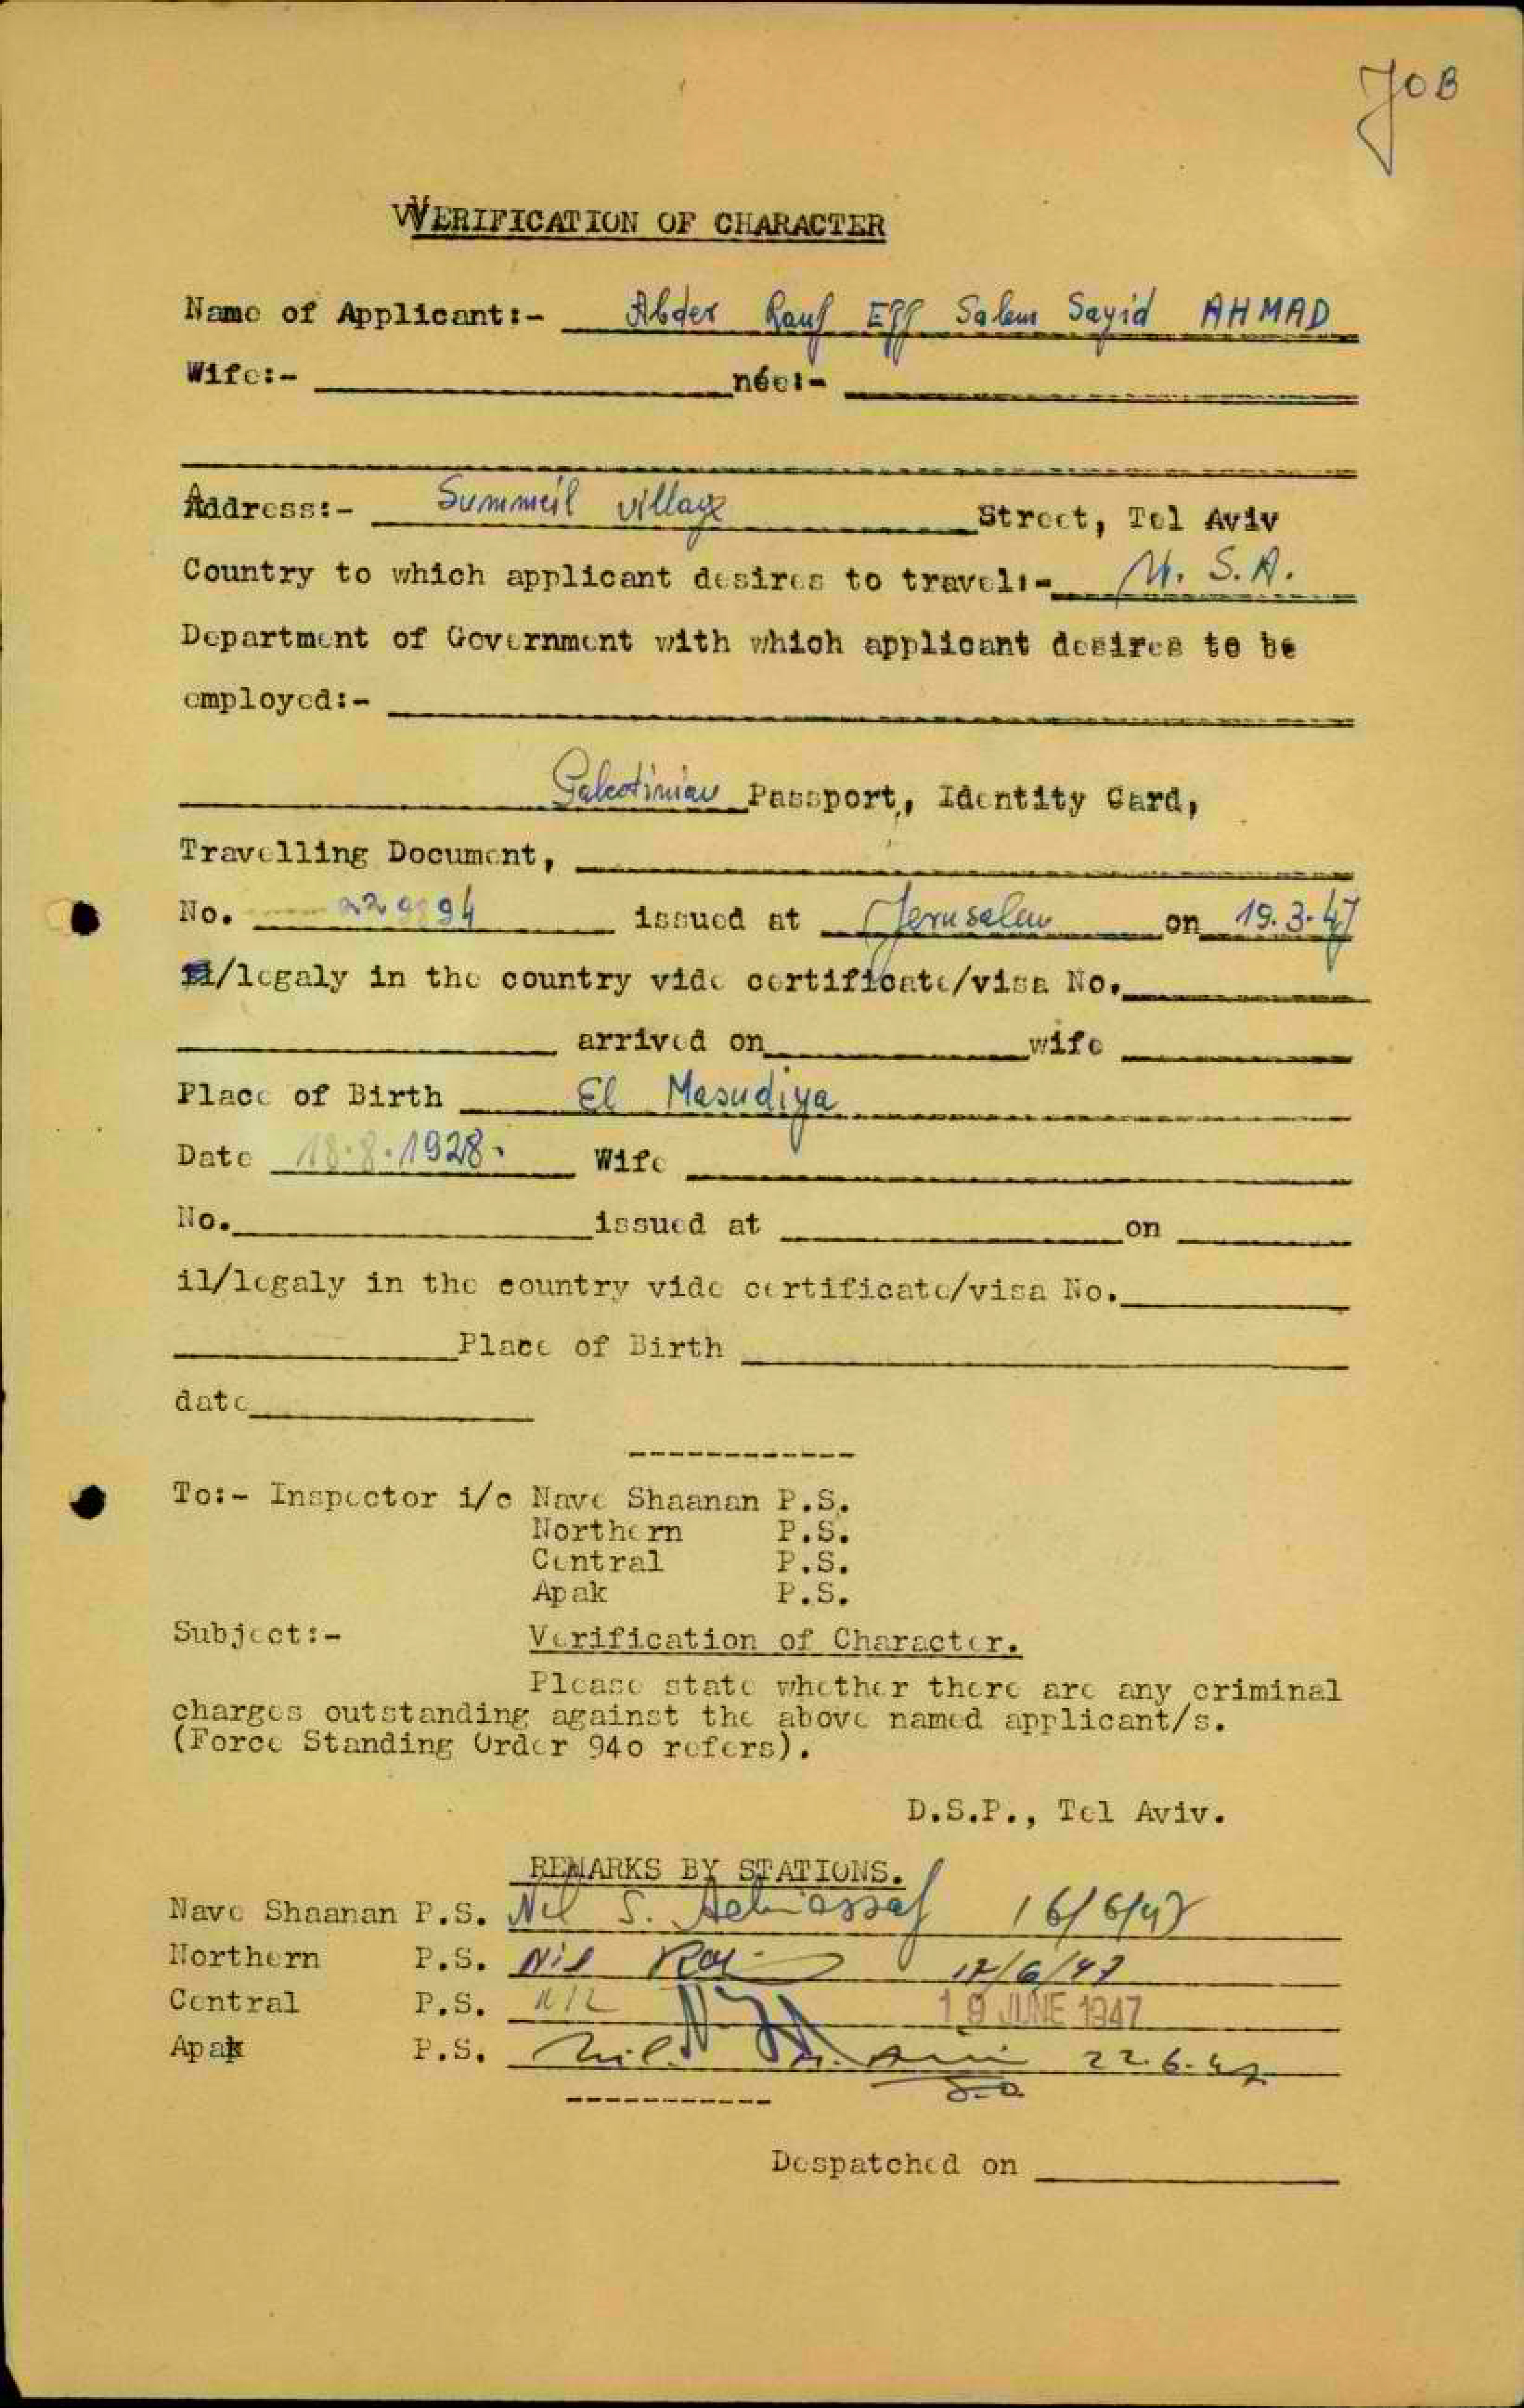 JOB
VERIFICATION OF CHARACTER
Name of Applicant:- Abder Rauf Eff Salem Sayid AHMAD
Wife:- née:-
Address:- Summeil village Street, Tel Aviv
Country to which applicant desires to travel:- U. S. A.
Department of Government with which applicant desires to be
employed:-
Palestinian Passport, Identity Card,
Travelling Document,
No. 229894 issued at Jerusalem on 19.3.47
il/legaly in the country vide certificate/visa No.
arrived on wife
Place of Birth El Masudiya
Date 18.8.1928. Wife
No. issued at on
il/legaly in the country vide certificate/visa No.
Place of Birth
date
------------
To:- Inspector i/c Nave Shaanan P.S.
Northern P.S.
Central P.S.
Apak P.S.
Subject:- Verification of Character.
Please state whether there are any criminal
charges outstanding against the above named applicant/s.
(Force Standing Order 940 refers).
D.S.P., Tel Aviv.
REMARKS BY STATIONS.
Nave Shaanan P.S. Nil S. 16/6/47
Northern P.S. Nil 17/6/47
Central P.S. NIL 19 JUNE 1947
Apak P.S. Nil. 22.6.47
-----------
Despatched on